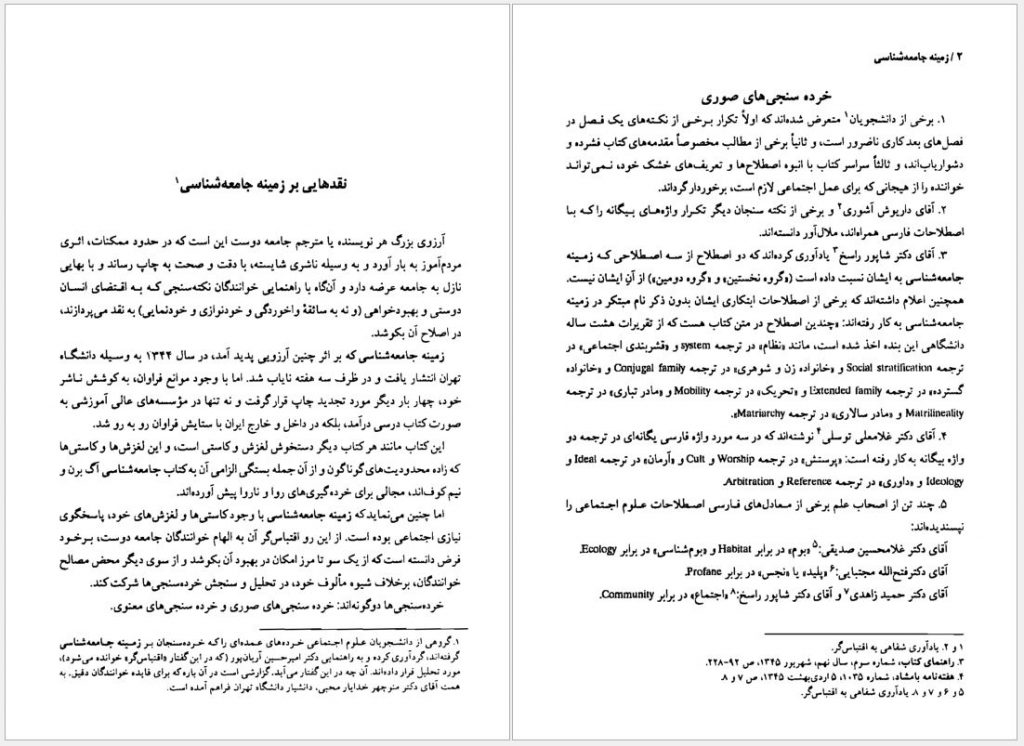 نقدهایی بر زمینه جامعه‌شناسی۱
آرزوی بزرگ هر نویسنده یا مترجم جامعه دوست این است که در حدود ممکنات، اثـری
مردم‌آموز به بار آورد و به وسیله ناشری شایسته، با دقت و صحت به چاپ رساند و با بهایی
نازل به جامعه عرضه دارد و آن‌گاه با راهنمایی خوانندگان نکته‌سنجی که بـه اقتضای انسان
دوستی و بهبودخواهی (و نه به سائقهٔ واخوردگی و خودنوازی و خودنمایی) به نقد می‌پردازند،
در اصلاح آن بکوشد.
زمینه جامعه‌شناسی که بر اثر چنین آرزویی پدید آمد، در سال ۱۳۴۴ به وسیله دانشگـاه
تهران انتشار یافت و در ظرف سه هفته نایاب شد. اما با وجود موانع فراوان، به کوشش ناشر
خود، چهار بار دیگر مورد تجدید چاپ قرار گرفت و نه تنها در مؤسسه‌های عالی آموزشی به
صورت کتاب درسی درآمد، بلکه در داخل و خارج ایران با ستایش فراوان رو به رو شد.
این کتاب مانند هر کتاب دیگر دستخوش لغزش و کاستی است، و این لغزش‌ها و کاستی‌ها
که زاده محدودیت‌های گوناگون و از آن جمله بستگی الزامی آن به کتاب جامعه‌شناسی آگ برن و
نیم کوف‌اند، مجالی برای خرده‌گیری‌های روا و ناروا پیش آورده‌اند.
اما چنین می‌نماید که زمینه جامعه‌شناسی با وجود کاستی‌ها و لغزش‌های خود، پاسخگوی
نیازی اجتماعی بوده است. از این رو اقتباس‌گر آن به الهام خوانندگان جامعه دوست، برخـود
فرض دانسته است که از یک سو تا مرز امکان در بهبود آن بکوشد و از سوی دیگر محض مصالح
خوانندگان، برخلاف شیوه مألوف خود، در تحلیل و سنجش خرده‌سنجی‌ها شرکت کند.
خرده‌سنجی‌ها دوگونه‌اند: خرده سنجی‌های صوری و خرده سنجی‌های معنوی.
۱. گروهی از دانشجویان علـوم اجتمـاعی خرده‌های عمده‌ای را کـه خرده‌سنجان بـر زمـینه جـامعه‌شناسی
گرفته‌اند، گردآوری کرده و به راهنمایی دکتر امیرحسین آریان‌پور (که در این گفتار «اقتباس‌گر» خوانده می‌شود)،
مورد تحلیل قرار داده‌اند. آن چه در این گفتار می‌آید، گزارشی است در آن باره که برای فایده خوانندگان دقیق، به
همت آقای دکتر منوچهر خدایار محبی، دانشیار دانشگاه تهران فراهم آمده است.
۲ / زمینه جامعه‌شناسی
خرده سنجی‌های صوری
۱. برخی از دانشجویان۱ متعرض شده‌اند که اولاً تکرار بـرخـی از نکته‌های یک فـصل در
فصل‌های بعد کاری ناضرور است، و ثانیاً برخی از مطالب مخصوصاً مقدمه‌های کتاب فشرده و
دشواریاب‌اند، و ثالثاً سراسر کتاب با انبوه اصطلاح‌ها و تعریف‌های خشک خود، نـمی‌توانـد
خواننده را از هیجانی که برای عمل اجتماعی لازم است، برخوردار گرداند.
۲. آقای داریوش آشوری۲ و برخی از نکته سنجان دیگر تکـرار واژه‌های بـیگانه را کـه بـا
اصطلاحات فارسی همراه‌اند، ملال‌آور دانسته‌اند.
۳. آقای دکتر شاپور راسخ۳ یادآوری کرده‌اند که دو اصطلاح از سـه اصطلاحـی کـه زمـینه
جامعه‌شناسی به ایشان نسبت داده است («گروه نخستین» و «گروه دومین») از آنِ ایشان نیست.
همچنین اعلام داشته‌اند که برخی از اصطلاحات ابتکاری ایشان بدون ذکر نام مبتکر در زمینه
جامعه‌شناسی به کار رفته‌اند: «چندین اصطلاح در متن کتاب هست که از تقریرات هشت ساله
دانشگاهی این بنده اخذ شده است، مانند «نظام» در ترجمه system و «قشربندی اجتماعی» در
ترجمه Social stratification و «خانواده زن و شوهری» در ترجمه Conjugal family و «خانواده
گسترده» در ترجمه Extended family و «تحریک» در ترجمه Mobility و «مادر تباری» در ترجمه
Matrilineality و «مادر سالاری» در ترجمه Matriarchy».
۴. آقای دکتر غلامعلی توسلی۴ نوشته‌اند که در سه مورد واژه فارسی یگانه‌ای در ترجمه دو
واژه بیگانه به کار رفته است: «پرستش» در ترجمه Worship و Cult و «آرمان» در ترجمه Ideal و
Ideology و «داوری» در ترجمه Reference و Arbitration.
۵. چند تن از اصحاب علم برخی از مـعادل‌های فـارسی اصطلاحات عـلوم اجتماعی را
نپسندیده‌اند:
آقای دکتر غلامحسین صدیقی:۵ «بوم» در برابر Habitat و «بوم‌شناسی» در برابر Ecology.
آقای دکترفتح‌الله مجتبایی:۶ «پلید» یا «نجس» در برابر Profane.
آقای دکتر حمید زاهدی۷ و آقای دکتر شاپور راسخ:۸ «اجتماع» در برابر Community.
۱ و ۲. یادآوری شفاهی به اقتباس‌گر.
۳. راهنمای کتاب، شماره سوم، سال نهم، شهریور ۱۳۴۵، ص ۹۲-۲۲۸.
۴. هفته‌نامه بامشاد، شماره ۱۰۳۵، ۵ اردیبهشت ۱۳۴۵، ص ۷ و ۸.
۵ و ۶ و ۷ و ۸. یادآوروی شفاهی به اقتباس‌گر.